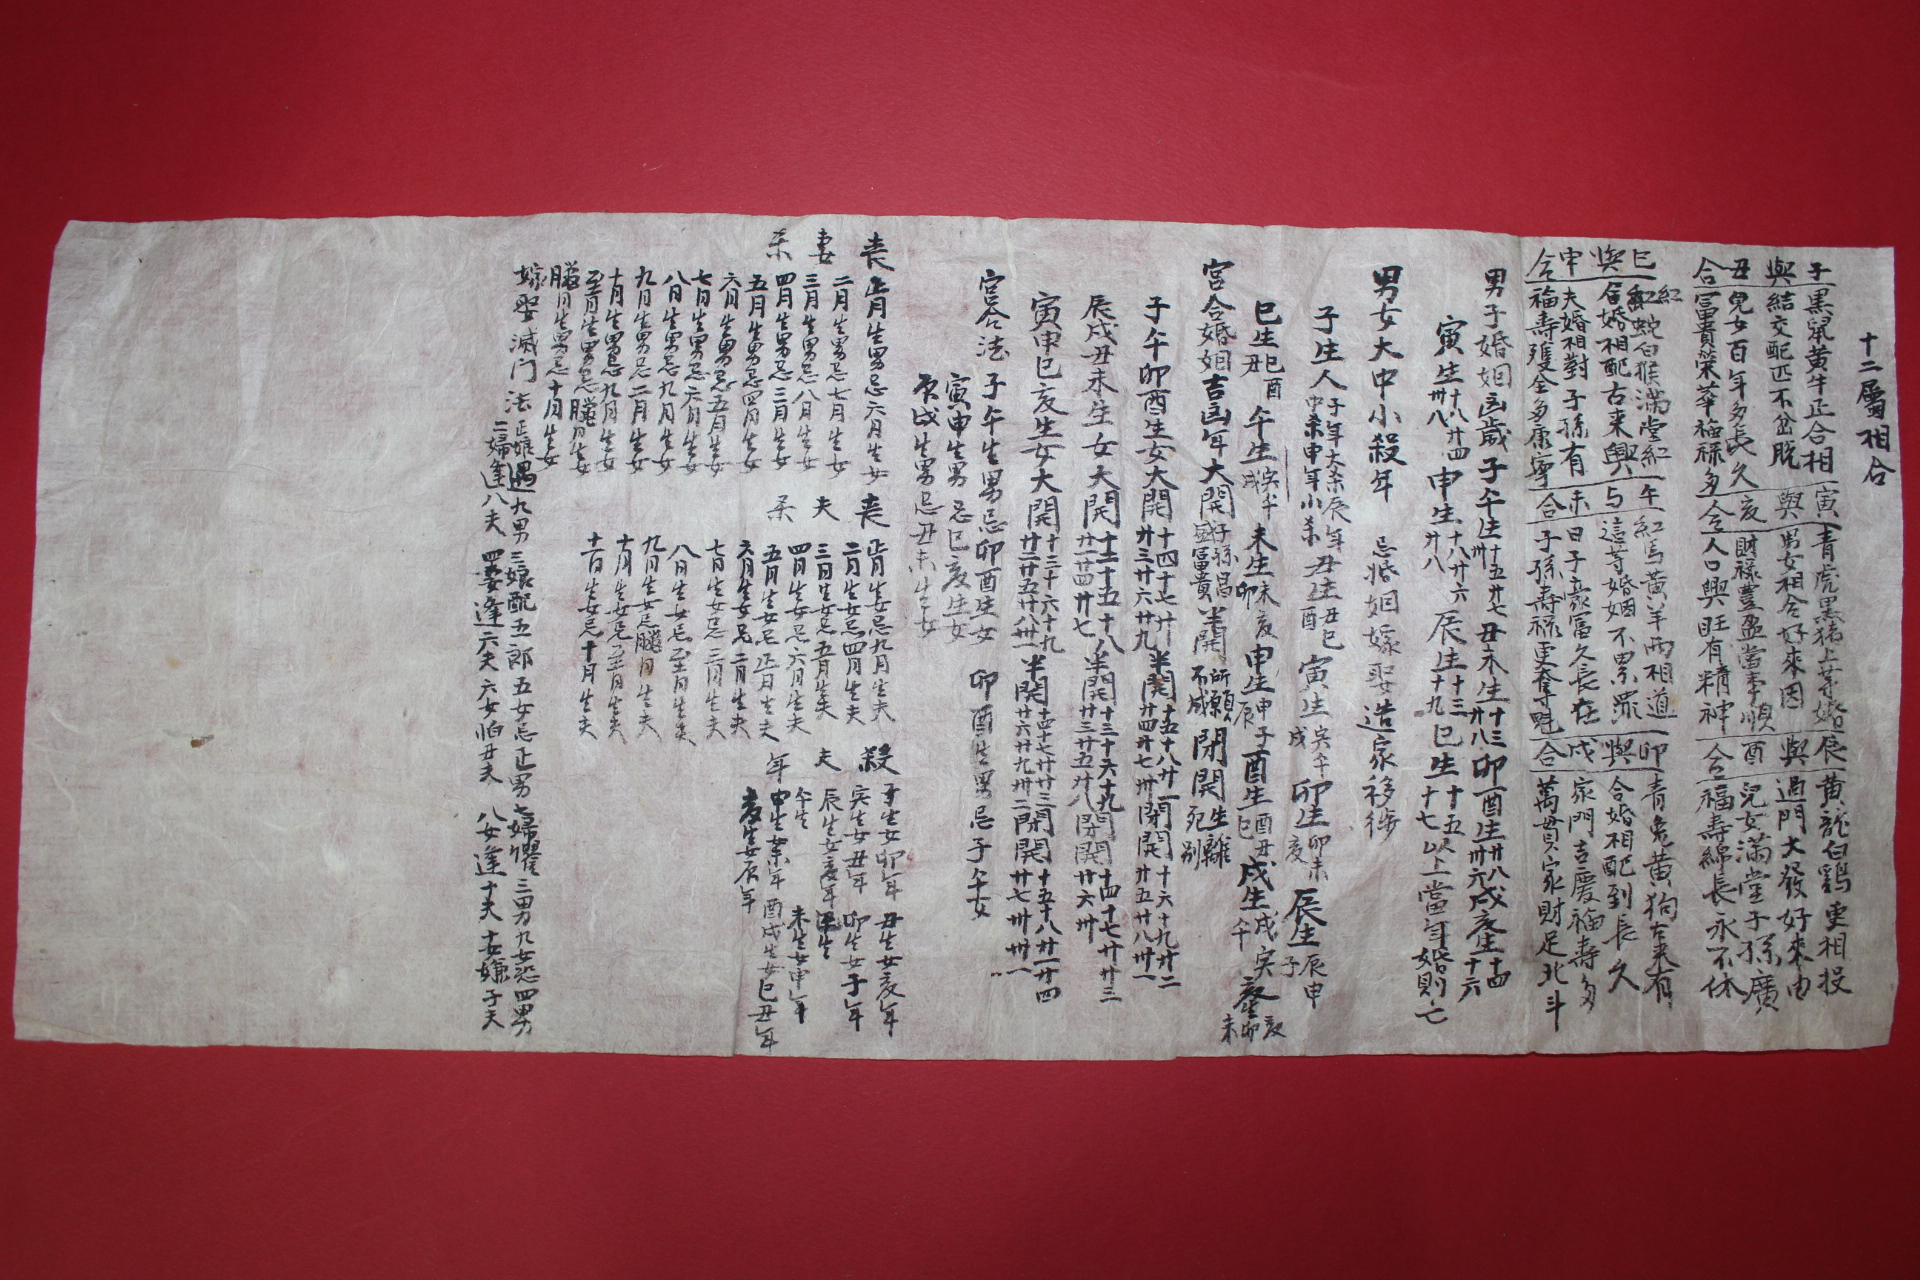 十二屬相合
子與丑合
黑鼠黃牛正合相
結交配匹不岔脫
兒女百年多長久
富貴榮華福祿多
寅與亥合
青虎黑猪上等婚
男女相合好來因
財祿豐盈當事順
人口興旺有精神
辰與酉合
黃龍白鷄更相投
過門大發好來由
兒女滿堂子孫廣
福壽綿長永不休
巳與申合
紅蛇白猴滿堂紅
合婚相配古來興
夫婚相對子孫有
福壽雙全多康寧
午与未合
紅馬黃羊兩相道
這等婚姻不累眾
日子豪富久長在
子孫壽祿更奪魁
卯與戌合
青兔黃狗古來有
合婚相配到長久
家門吉慶福壽多
萬貫家財足北斗
男子婚姻凶歲 子午生十五廿七卅 丑未生十三卅八 卯酉生廿八卅六 戌亥生十四十六
寅生十八廿四卅八 申生十八廿六廿八 辰生十三十九 巳生十五十七以上當年婚則亡
男女大中小殺年 忌婚姻嫁娶造家移徙
子生人子年大杀辰年中杀申年小杀 丑生丑巳酉 寅生寅午戌 卯生卯未亥 辰生辰申子
巳生巳酉丑 午生寅午戌 未生未亥卯 申生申子辰 酉生酉丑巳 戌生戌寅午 亥生亥卯未
宮合婚姻吉凶年 大開好孫昌盛富貴 半開所願不成 閉開生離死別
子午卯酉生女大開十四十七廿廿三廿六廿九 半開十五十八廿一廿四廿七卅 閉開十六十九廿二廿五廿八卅一
辰戌丑未生女大開十二十五十八廿一廿四廿七 半開十三十六十九廿三廿五廿八 閉開十四十七廿廿三廿六卅
寅申巳亥生女大開十三十六十九廿二廿五廿八卅一 半開十四十七廿廿三廿六廿九卅二 閉開十五十八廿一廿四廿七卅卅一
宮合法 子午生男忌卯酉生女 卯酉生男忌子午女
寅申生男忌巳亥生女
辰戌生男忌丑未生女
喪妻杀
正月生男忌六月生女
二月生男忌七月生女
三月生男忌八月生女
四月生男忌三月生女
五月生男忌四月生女
六月生男忌五月生女
七月生男忌六月生女
八月生男忌九月生女
九月生男忌二月生女
十月生男忌九月生女
至月生男忌臘月生女
臘月生男忌十月生女
喪夫杀
正月生女忌九月生夫
二月生女忌四月生夫
三月生女忌五月生夫
四月生女忌六月生夫
五月生女忌正月生夫
六月生女忌二月生夫
七月生女忌三月生夫
八月生女忌至月生夫
九月生女忌臘月生夫
十月生女忌至月生夫
十一月生女忌十月生夫
殺夫年
子生女卯年 丑生女亥年
寅生女丑年 卯生女子年
辰生女亥年 巳生
午生 未生女申年
申生 年 酉戌生女巳丑年
亥生女辰年
嫁娶滅门法 正娘遇九男 三娘配五郎 五女忌正男 七婦懼三男 九女恐四男
二婦逢八夫 四妻逢六夫 六女怕丑夫 八女逢十夫 十女嫌子夫